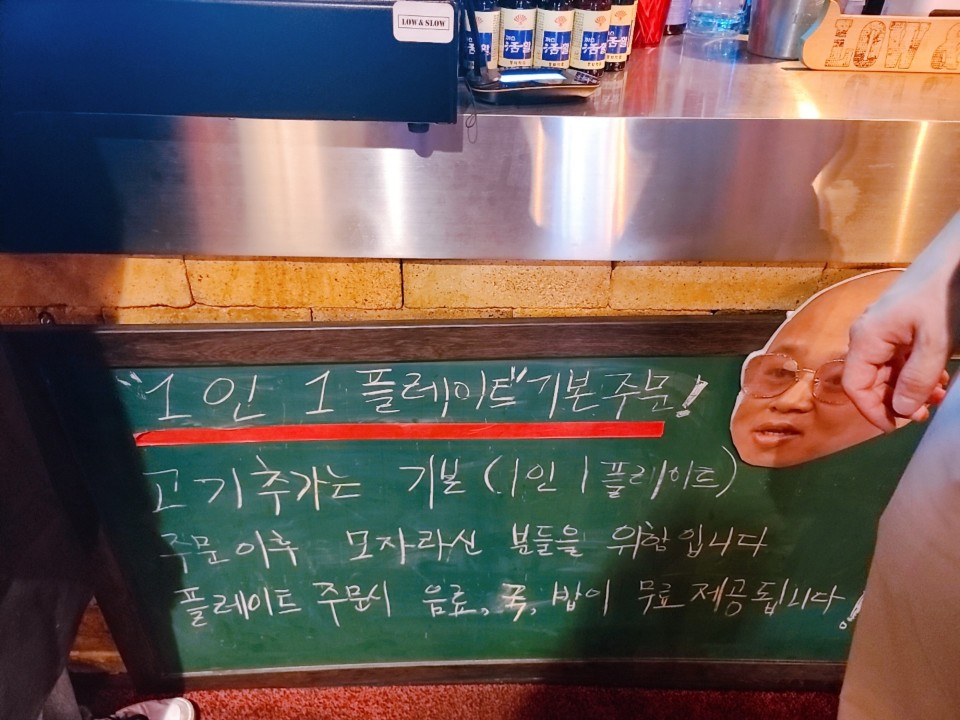 LOW & SLOW
활명수
LOW &
"1인 1 플레이트" 기본주문!
고기추가는 기본 (1인 1 플레이트)
주문이후 모자라신 분들을 위함입니다
플레이트 주문시 음료, 국, 밥이 무료제공됩니다!